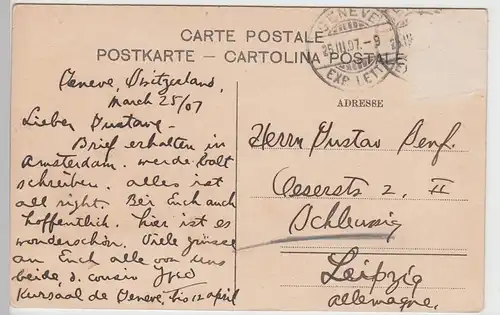 CARTE POSTALE
POSTKARTE - CARTOLINA POSTALE
GENEVE
25.III.07. - 9
EXP. LETT
ADRESSE
Geneve, Switzerland,
March 25/07
Lieber Gustave -
Brief erhalten in
Amsterdam. werde balt
schreiben. alles ist
all right. Bei Euch auch
hoffentlich. hier ist es
wonderschön. Viele grüsse
an Euch alle von uns
beide, d. cousin
Kursaal de Geneve, bis 12 april
Herrn Gustav
Oeserstr 2. II
Schleussig
Leipzig
Allemagne.